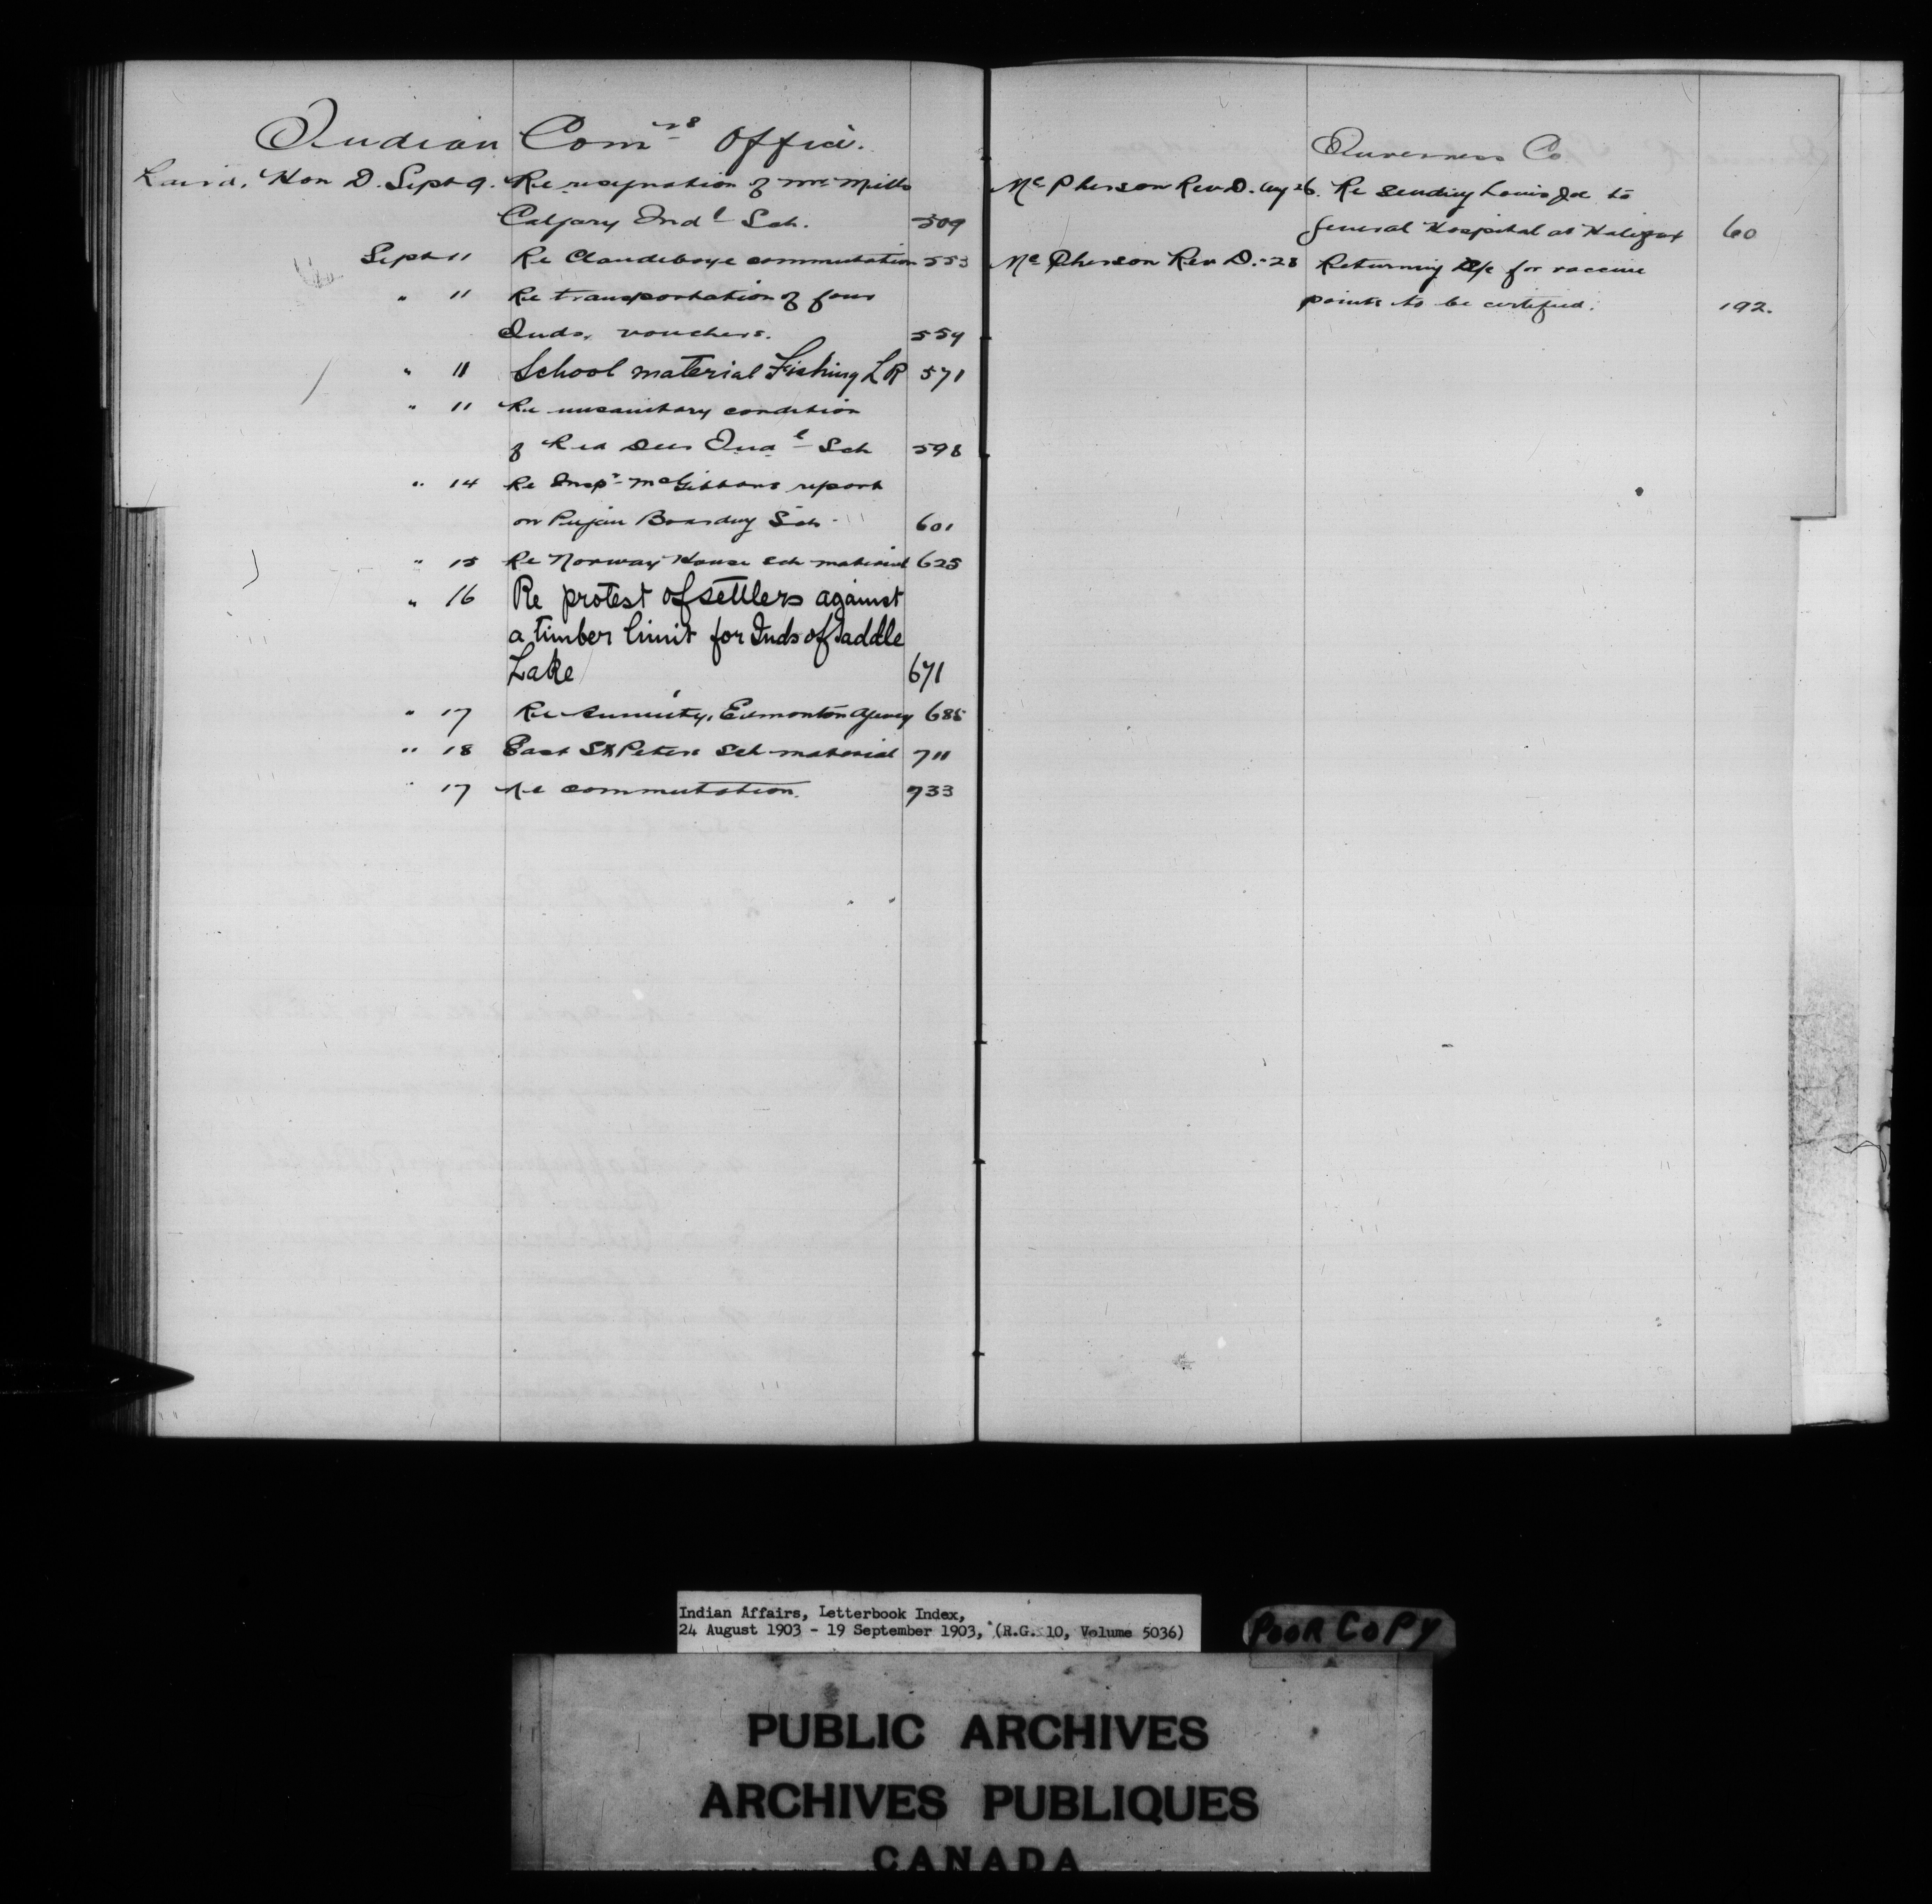 Indian Comrs Office.
Laird, Hon D. Sept 9. Re resignation of Mr Mills
Calgary Indl Sch. 509
Sept 11 Re Clandeboye commutation 553
" 11 Re transportation of four
Inds, vouchers. 554
" 11 School material Fishing L R 571
" 11 Re unsanitary condition
of Red Deer Indl Sch 598
" 14 Re Inspr McGibbons report
on Boarding Sch. 601
" 15 Re Norway House Sch material 625
" 16 Re protest of settlers against
a timber limit for Inds of Saddle
Lake 671
" 17 Re Annuity, Edmonton Agency 685
" 18 East St Peters Sch material 711
" 17 Re commutation. 733
Inverness Co
McPherson Rev D. Aug 26. Re sending Louis Joe to
General Hospital at Halifax 60
McPherson Rev D. " 28 Returning a/c for vaccine
points to be certified. 192.
Indian Affairs, Letterbook Index,
24 August 1903 - 19 September 1903, (R.G. 10, Volume 5036)
POOR COPY
PUBLIC ARCHIVES
ARCHIVES PUBLIQUES
CANADA